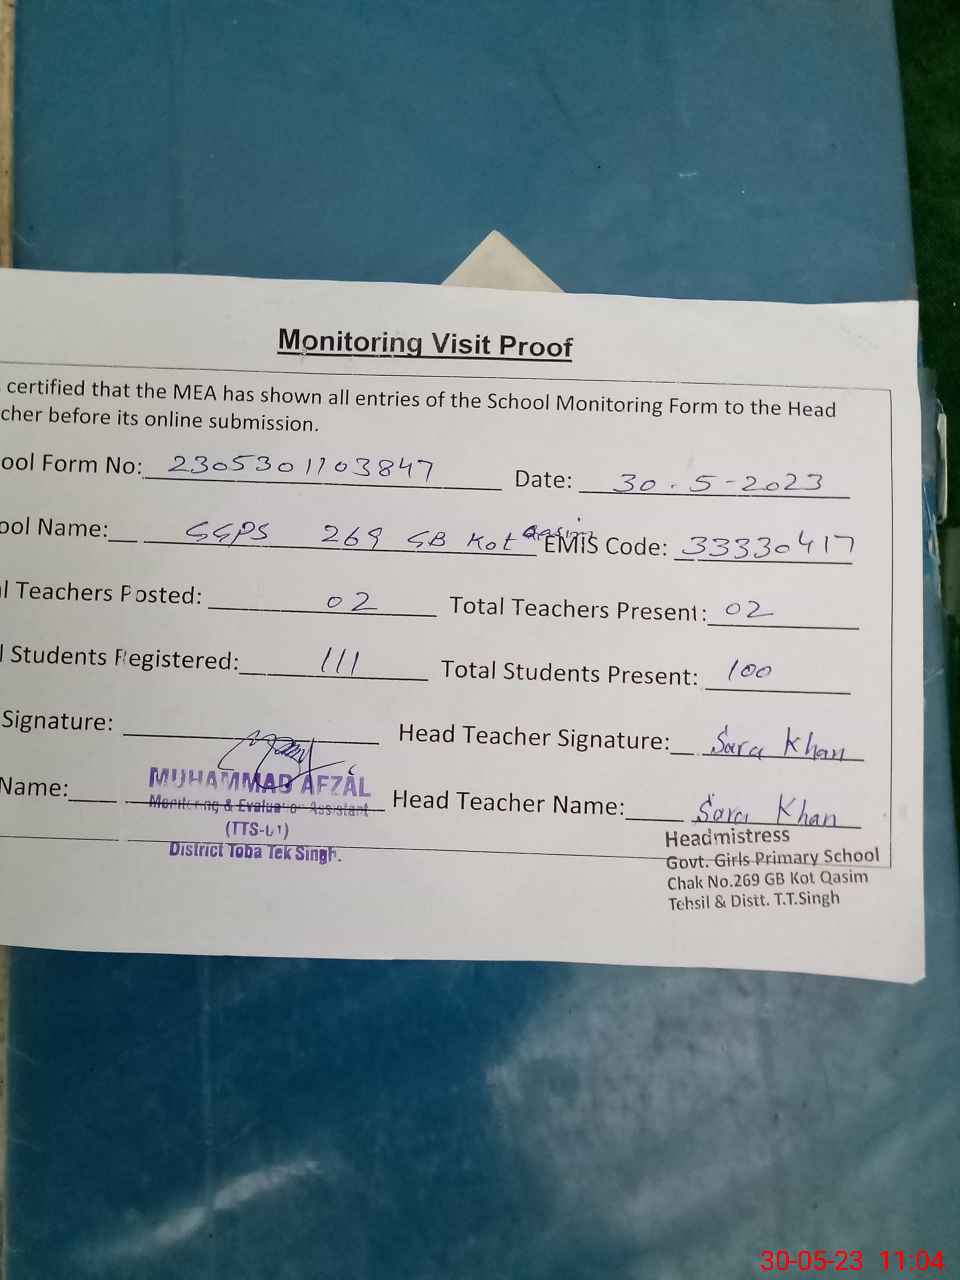 Monitoring Visit Proof
certified that the MEA has shown all entries of the School Monitoring Form to the Head
cher before its online submission.
ool Form No: 2305301103847 Date: 30.5-2023
ool Name: GGPS 269 GB Kot Qasim EMIS Code: 33330417
l Teachers Posted: 02 Total Teachers Present: 02
l Students Registered: 111 Total Students Present: 100
Signature: Head Teacher Signature: Sara Khan
Name: MUHAMMAD AFZAL Head Teacher Name: Sara Khan
Monitoring & Evaluation Assistant
(TTS-01)
District Toba Tek Singh.
Headmistress
Govt. Girls Primary School
Chak No.269 GB Kot Qasim
Tehsil & Distt. T.T.Singh
30-05-23 11:04